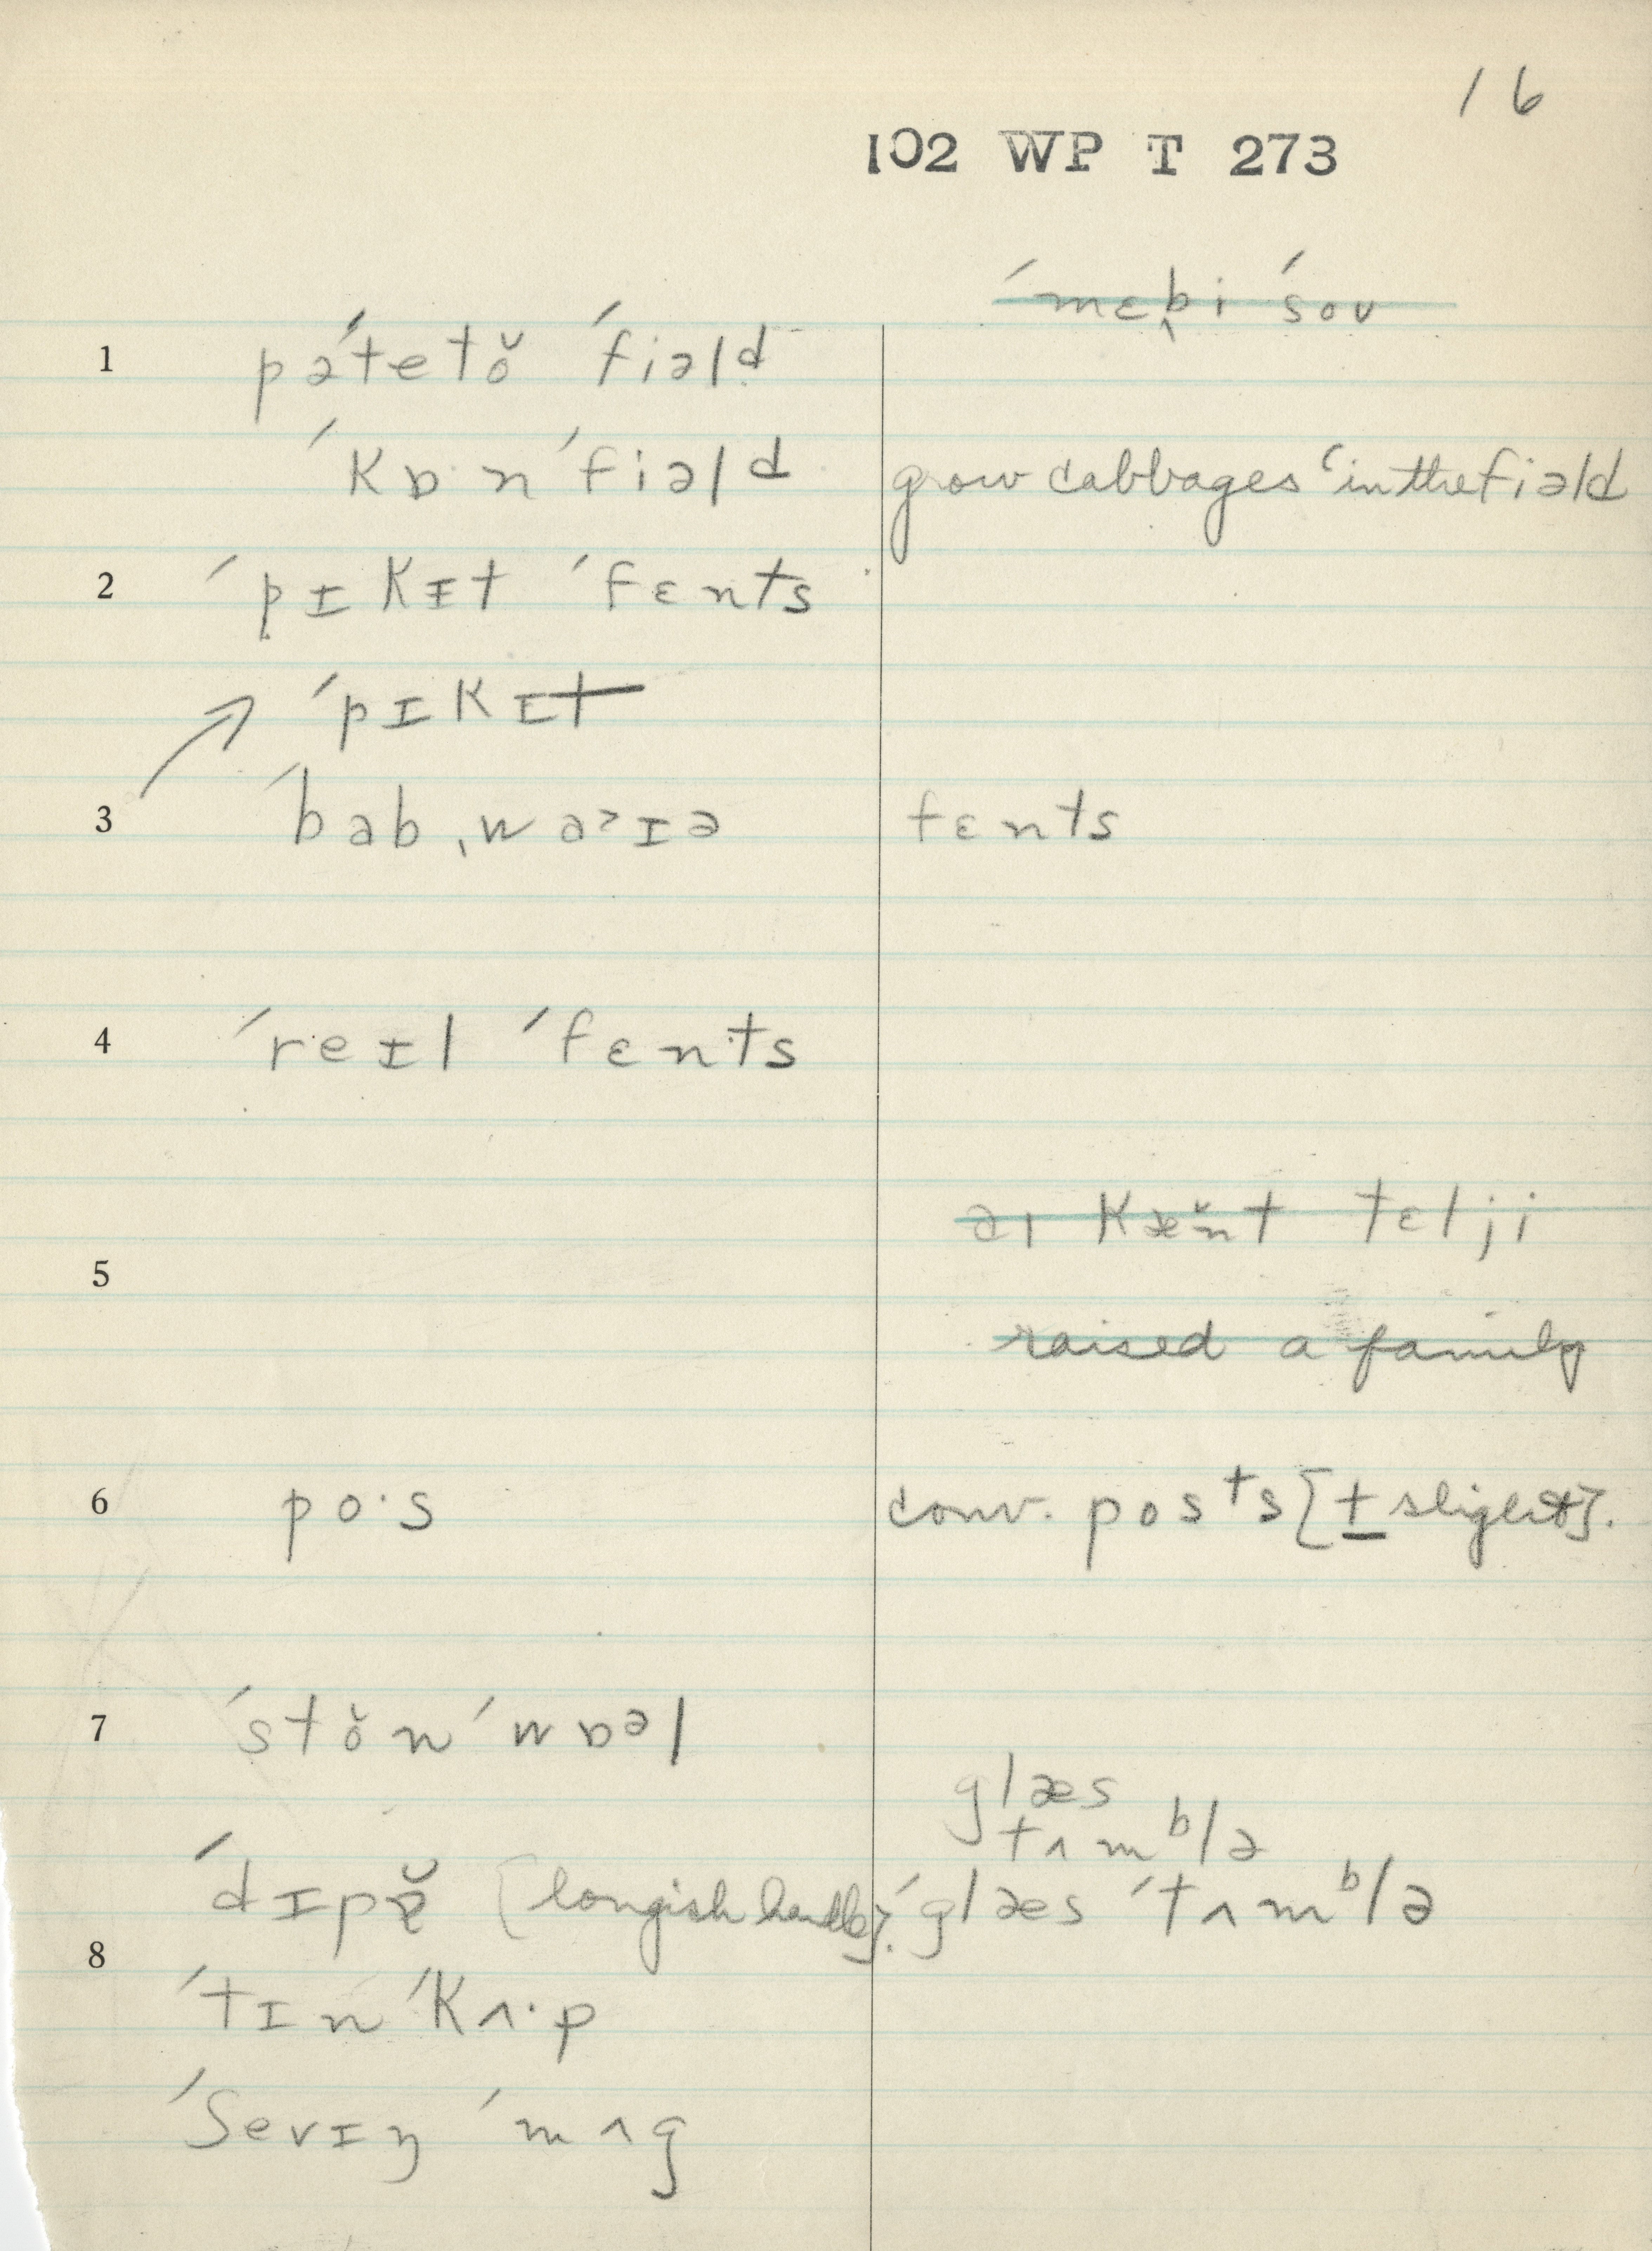 16
102 WP T 273
ˈmɛbi ˈsoʊ
1 pəˈtetŏ ˈfiəld
ˈkɒ·n ˈfiəld grow cabbages ‘in the fiəld
2 ˈpɪkɪt ˈfɛnts
ˈpɪkɪt
3 ˈbabˌwaɪə fɛnts
4 ˈreɪl ˈfɛnts
aɪ kæ̆nt tɛl ji
5
raised a family
6 po·s conv. posts [t slight].
7 ˈstŏn ˈwɒəl
glæs
tʌmᵇlə
ˈdɪpə̆ [longish handle]. ˈglæs ˈtʌmᵇlə
8
ˈtɪn ˈkʌ·p
ˈʃevɪŋ ˈmʌg